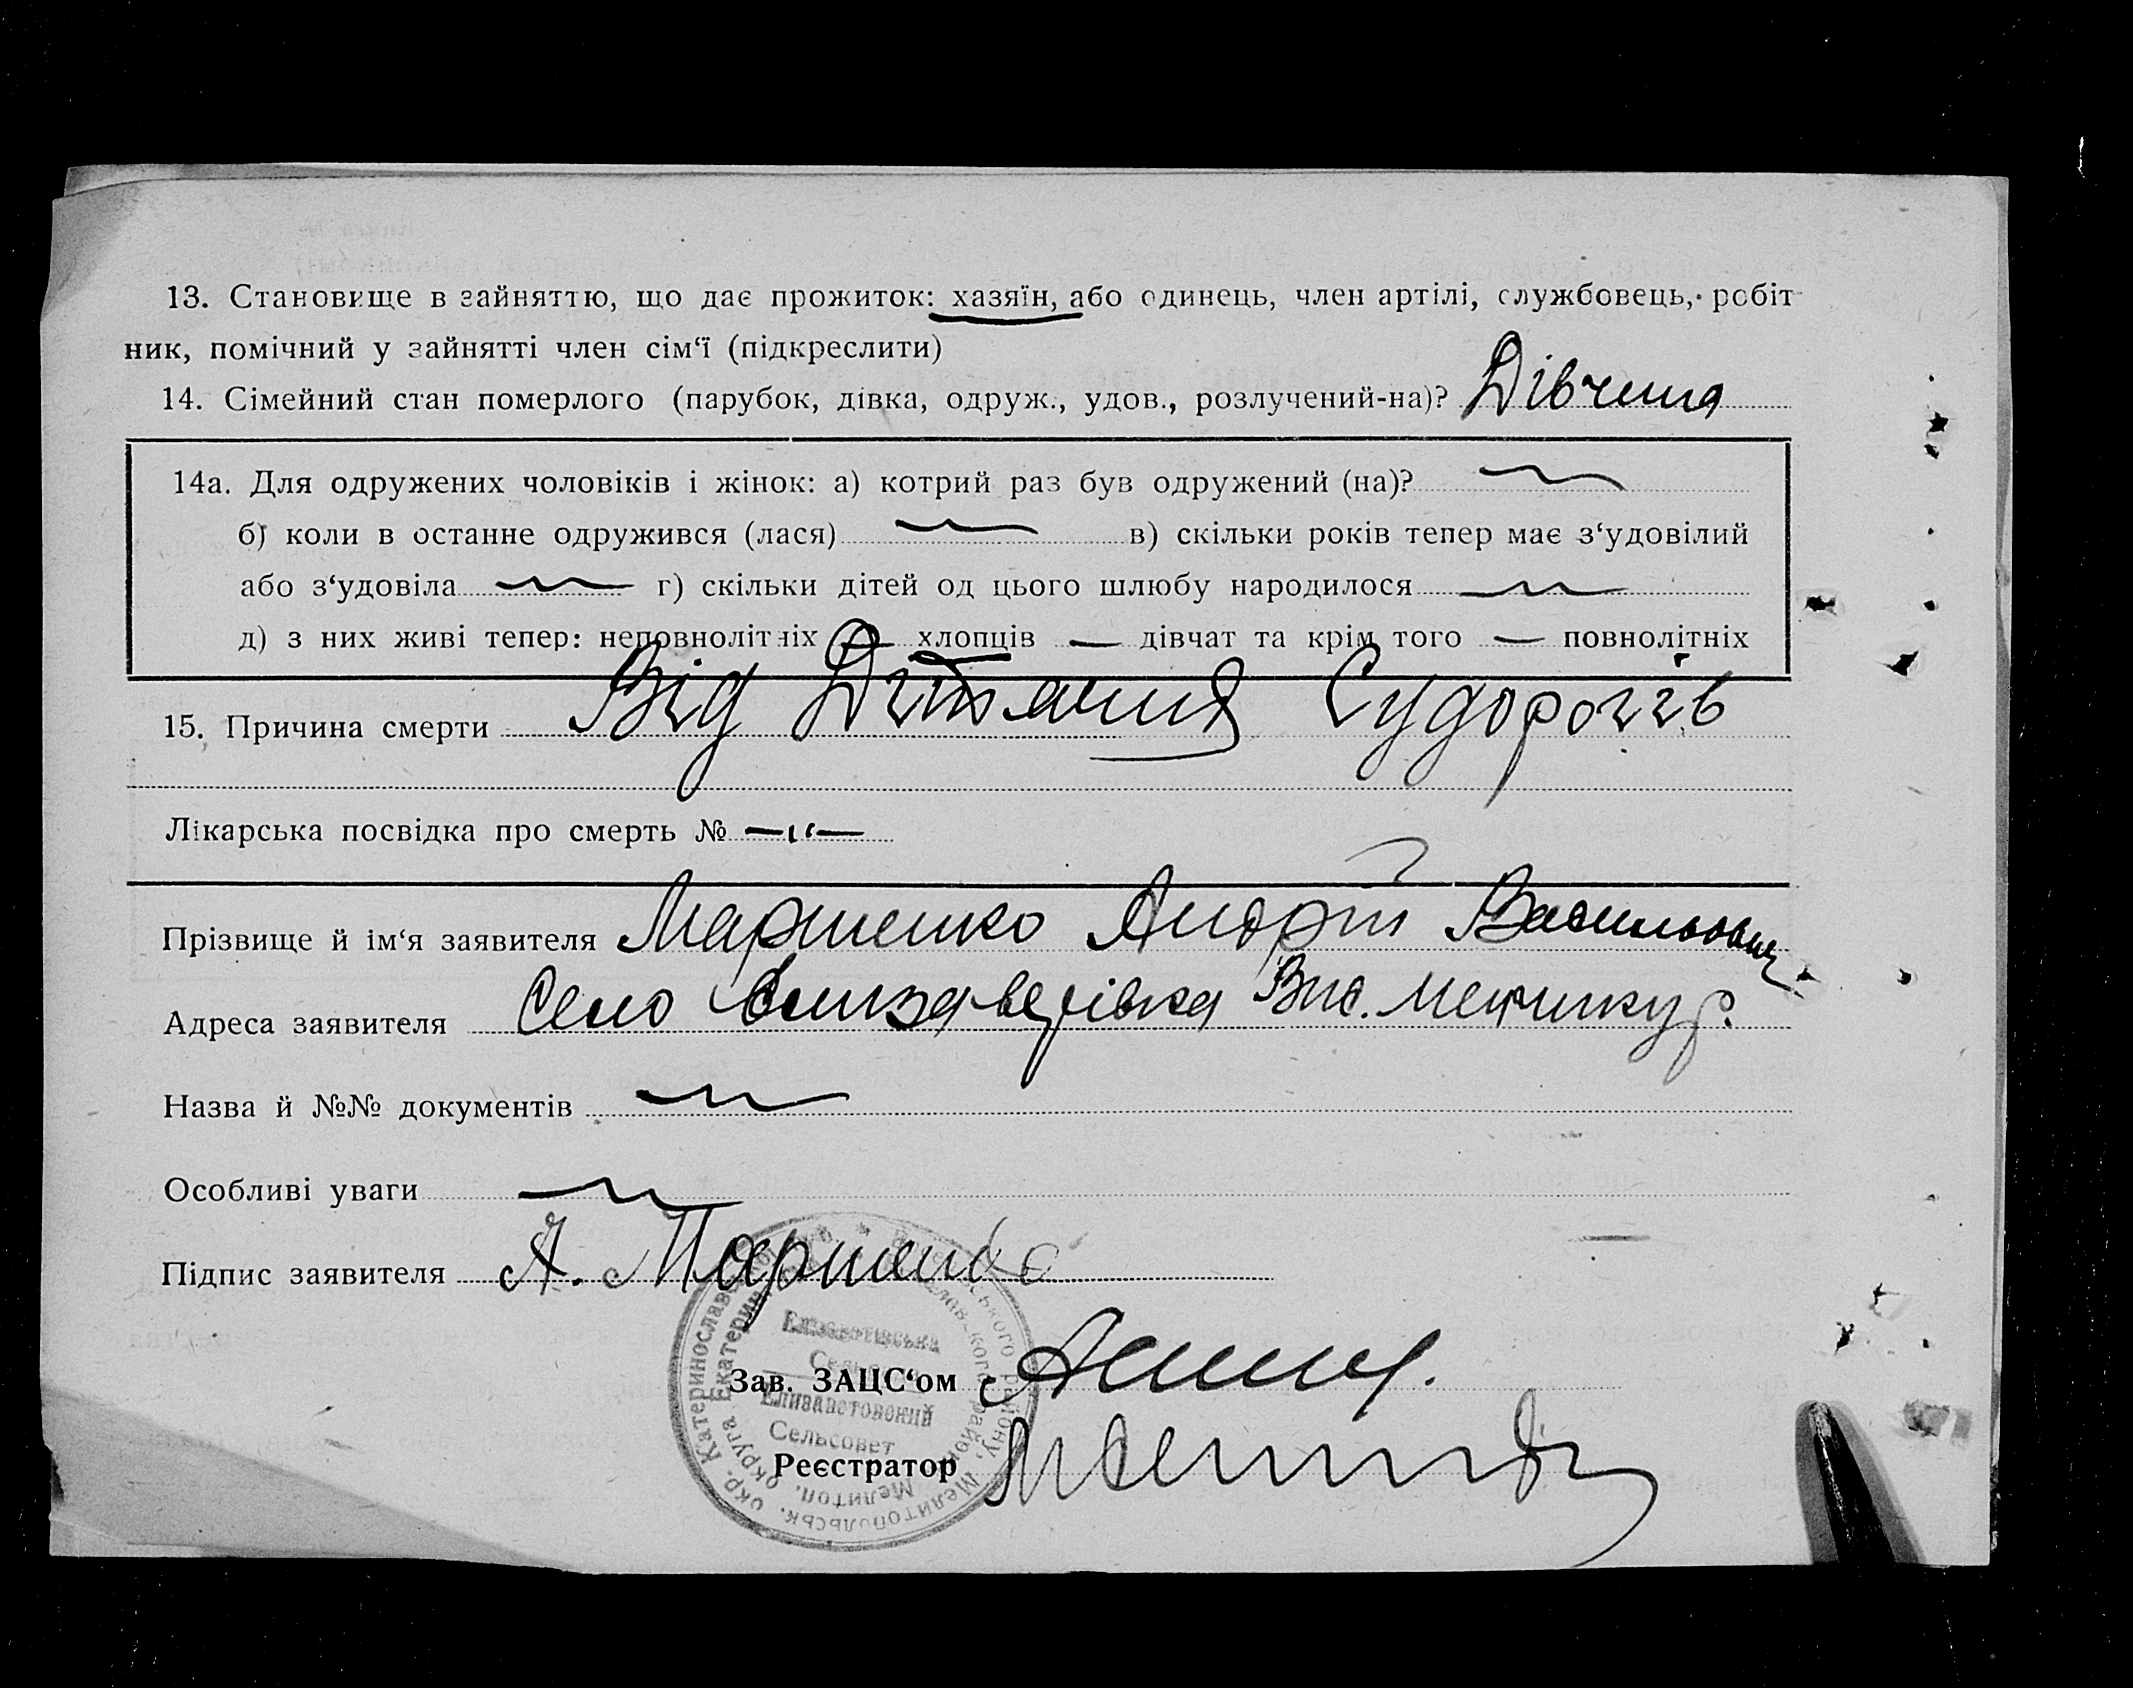 13. Становище в зайняттю, що дає прожиток: хазяїн, або одинець, член артілі, службовець, робіт-
ник, помічний у зайнятті член сім‘ї (підкреслити)
14. Сімейний стан померлого (парубок, дівка, одруж., удов., розлучений-на)? Дівчина
14а. Для одружених чоловіків і жінок: а) котрий раз був одружений (на)?
б) коли в останне одружився (лася) в) скільки років тепер має з‘удовілий
або з‘удовіла г) скільки дітей од цього шлюбу народилося
д) з них живі тепер: неповнолітніх — хлопців — дівчат та крім того — повнолітніх
15. Причина смерти Від Дитячих Судорогів
Лікарська посвідка про смерть № —„—
Прізвище й ім‘я заявителя Марченко Андрій Васильович
Адреса заявителя Село Єлизаветівка
Назва й №№ документів
Особливі уваги
Підпис заявителя А. Марченко
Єлизаветівська
Сельрада
Зав. ЗАЦС‘ом
Елизаветовский
Сельсовет
Реєстратор